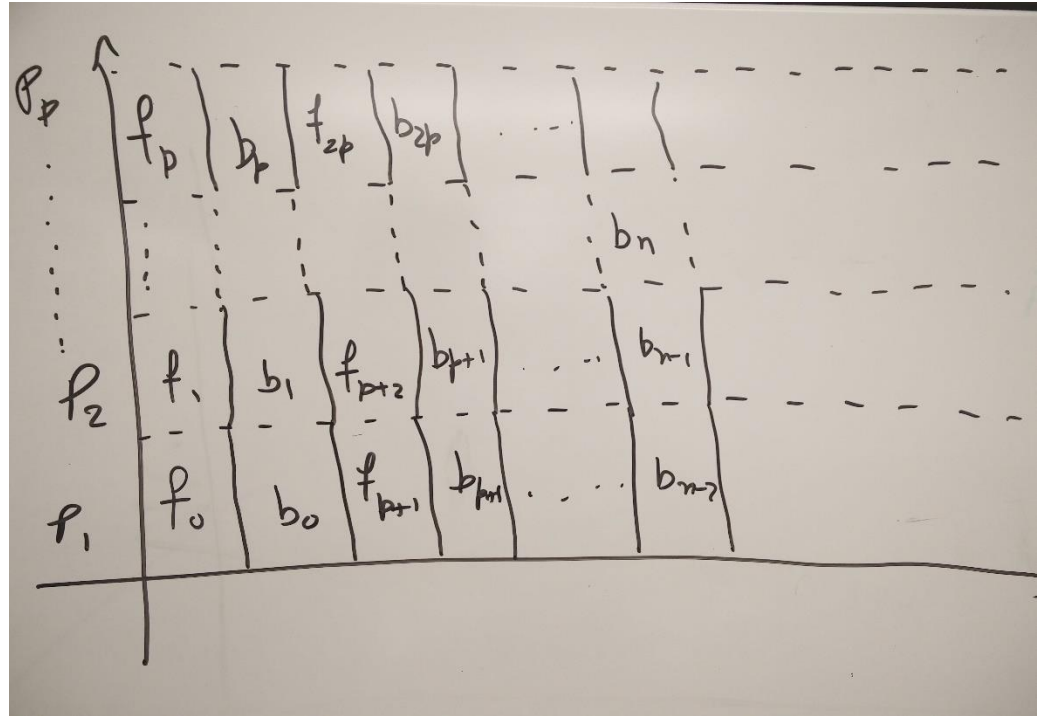 P_p f_p b_p f_2p b_2p . . . . .
b_n
P_2 f_1 b_1 f_p+2 b_p+1 . . . . b_n-1
P_1 f_0 b_0 f_p+1 . . . . .